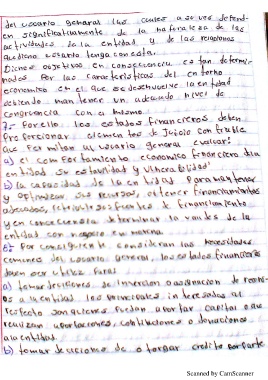 del usuario general las cuales a su vez depend-
en significativamente de la naturaleza de las
actividades de la entidad y de las relaciones
que dicho usuario tenga con esta.
Dichos objetivos en consecuencia estan determi-
nados por las características del entorno
economico en el que se desenvuelve la entidad
debiendo mantener un adecuado nivel de
congruencia con el mismo.
7- Por ello los estados financieros deben
proporcionar elementos de juicio confiable
que permitan al usuario general evaluar:
a) el comportamiento economico financiero de la
entidad su estabilidad y vulnerabilidad
b) la capacidad de la entidad para mantener
y optimizar sus recursos, obtener financiamientos
adecuados, retribuir sus fuentes de financiamiento
y en consecuencia determinar la de la
entidad como negocio en marcha
8- Por consiguiente, considerando las necesidades
comunes del usuario general, los estados financieros
deben ser utiles para:
a) tomar decisiones de inversion o asignacion de recur-
sos a la entidad los principales interesados al
respecto son quienes puedan aportar capital o que
realizan aportaciones, contribuciones o donaciones
a la entidad.
b) tomar decisiones de otorgar credito por parte
Scanned by CamScanner